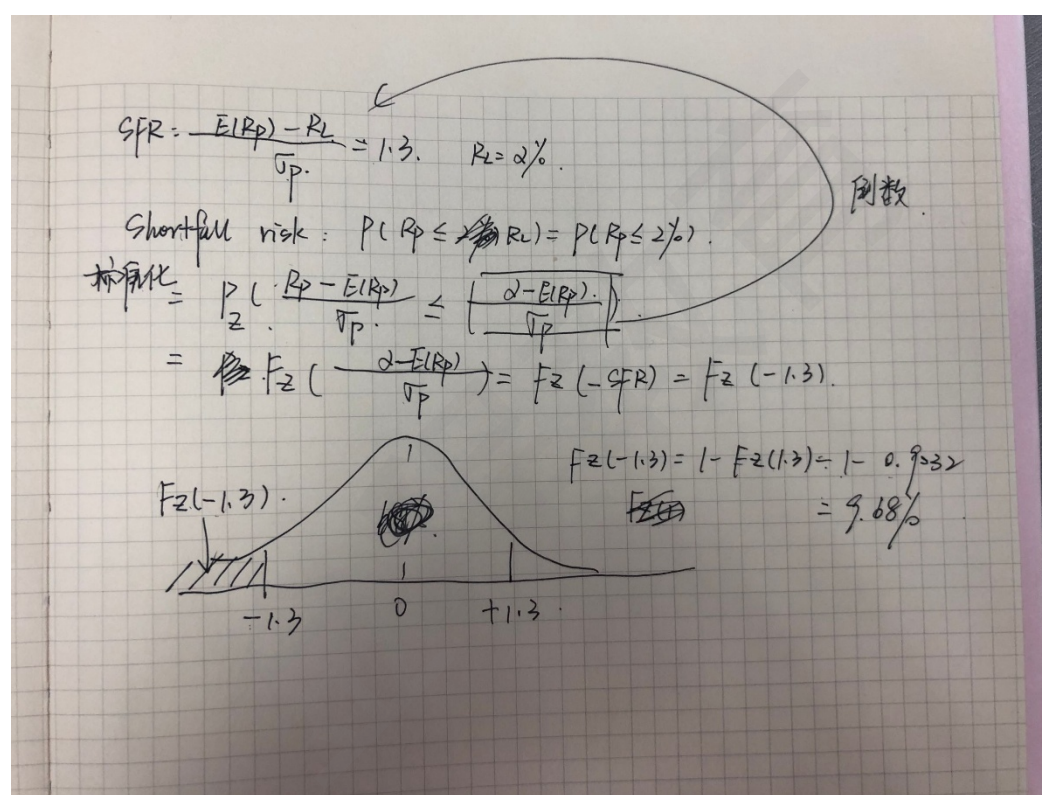 SFR = \frac{E(Rp) - RL}{σp} = 1.3. RL = 2%.
倒数.
Shortfall risk: P(Rp ≤ RL) = P(Rp ≤ 2%).
标准化 = P_Z(\frac{Rp - E(Rp)}{σp} ≤ \frac{2 - E(Rp)}{σp})
= F_Z(\frac{2 - E(Rp)}{σp}) = F_Z(-SFR) = F_Z(-1.3).
F_Z(-1.3) = 1 - F_Z(1.3) = 1 - 0.9032
= 9.68%
F_Z(-1.3).
-1.3 0 +1.3